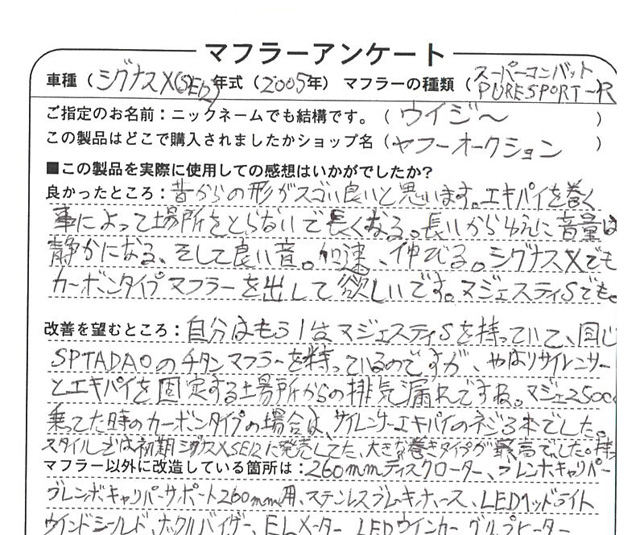 マフラーアンケート
車種（シグナスX(SE12)年式（2005年）マフラーの種類（スーパーコンバット PURESPORT-R
ご指定のお名前：ニックネームでも結構です。（ウイジ〜）
この製品はどこで購入されましたかショップ名（ヤフーオークション）
■この製品を実際に使用しての感想はいかがでしたか?
良かったところ：昔からの形がスゴい良いと思います。エキパイを巻く
事によって場所をとらないで長くなる。長いからゆえに音量は
静かになる、そして良い音。加速、伸びる。シグナスXでも
カーボンタイプマフラーを出して欲しいです。マジェスティSでも。
改善を望むところ：自分はもう1台マジェスティSを持っていて、同じ
SPTADAOのチタンマフラーを持っているのですが、やはりサイレンサー
とエキパイを固定する場所からの排気漏れですね。マジェ250C
乗てた時のカーボンタイプの場合は、サイレンサーエキパイのネジ3本でした。
スタイルでは初期シグナスXSE12に発売してた、大きな巻きタイプが最高でした。
マフラー以外に改造している箇所は：260mmディスクローター、ブレンボキャリパー
ブレンボキャリパーサポート260mm用、ステンレスブレーキホース、LEDヘッドライト
ウインドシールド、ナックルバイザー、ELメーター LEDウインカー グリップヒーター